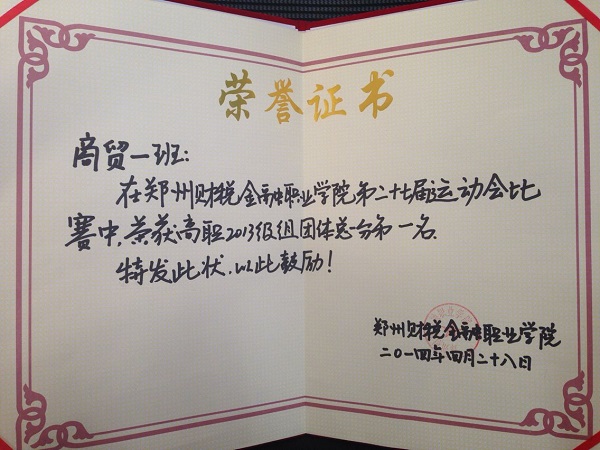 荣誉证书
商贸一班:
在郑州财税金融职业学院第二十七届运动会比
赛中,荣获高职2013级组团体总分第一名.
特发此状,以此鼓励!
郑州财税金融职业学院
二〇一四年四月二十八日